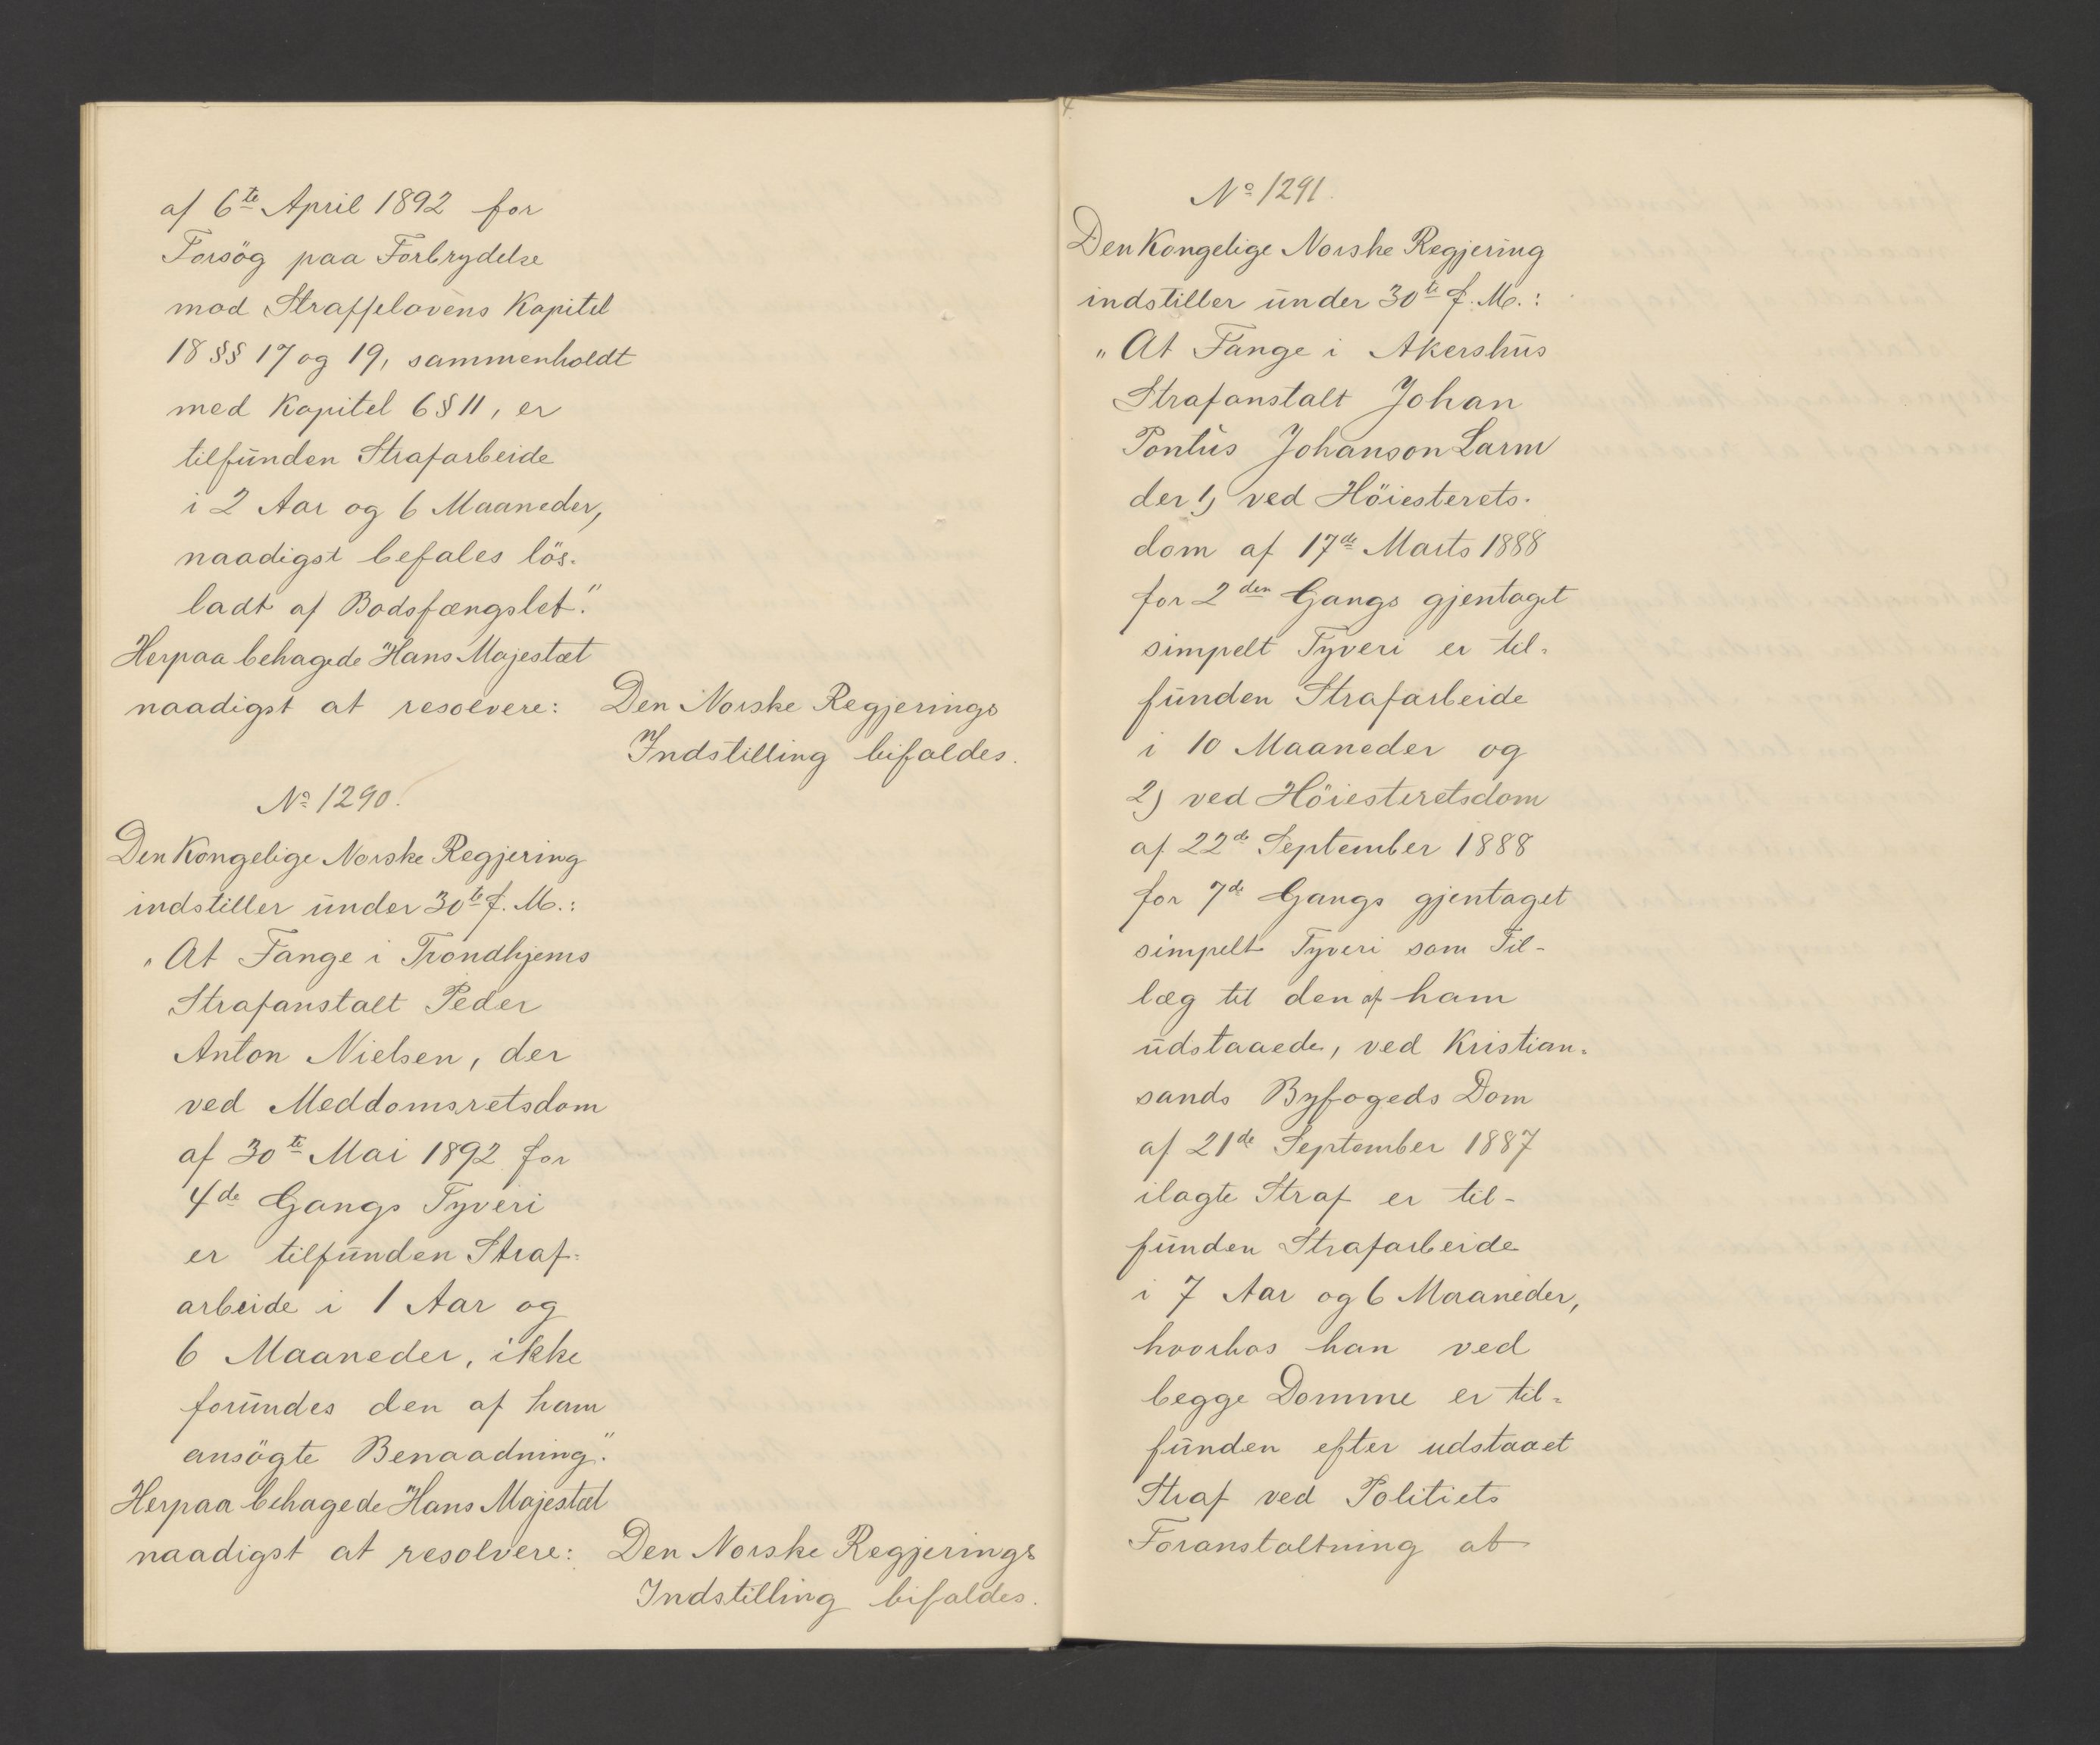 af 6te April 1892 for
Forsög paa Forbrydelse
mod Straffelovens Kapitel
18 §§ 17 og 19, sammenholdt
med Kapitel 6 § 11, er
tilfunden Strafarbeide
i 2 Aar og 6 Maaneder,
naadigst befales lös-
ladt af Bodsfængslet."
Herpaa behagede Hans Majestæt
naadigst at resolvere: Den Norske Regjerings
Indstilling bifaldes.
No 1290.
Den Kongelige Norske Regjering
indstiller under 30te f. M.:
"At Fange i Trondhjems
Strafanstalt Peder
Anton Nielsen, der
ved Meddomsretsdom
af 30te Mai 1892 for
4de Gangs Tyveri
er tilfunden Straf-
arbeide i 1 Aar og
6 Maaneder, ikke
forundes den af ham
ansögte Benaadning."
Herpaa behagede Hans Majestæt
naadigst at resolvere: Den Norske Regjerings
Indstilling bifaldes.
No 1291.
Den Kongelige Norske Regjering
indstiller under 30te f. M.:
"At Fange i Akershus
Strafanstalt Johan
Pontus Johanson Larm
der 1) ved Höiesterets-
dom af 17de Marts 1888
for 2den Gangs gjentaget
simpelt Tyveri er til-
funden Strafarbeide
i 10 Maaneder og
2) ved Höiesteretsdom
af 22de September 1888
for 7de Gangs gjentaget
simpelt Tyveri som Til-
læg til den af ham
udstaaede, ved Kristian-
sands Byfogeds Dom
af 21de September 1887
ilagte Straf er til-
funden Strafarbeide
i 7 Aar og 6 Maaneder,
hvorhos han ved
begge Domme er til-
funden efter udstaaet
Straf ved Politiets
Foranstaltning at